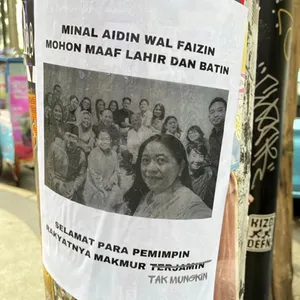 MINAL AIDIN WAL FAIZIN
MOHON MAAF LAHIR DAN BATIN
SELAMAT PARA PEMIMPIN
RAKYATNYA MAKMUR TERJAMIN
TAK MUNGKIN